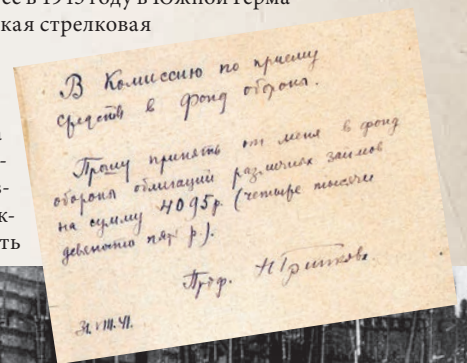 1945 году в Южной Герма
кая стрелковая
В Комиссию по приему
средств в фонд обороны.
Прошу принять от меня в фонд
обороны облигаций различных займов
на сумму 4095р. (четыре тысячи
девяносто пять р.).
Проф.
31.VIII.41.